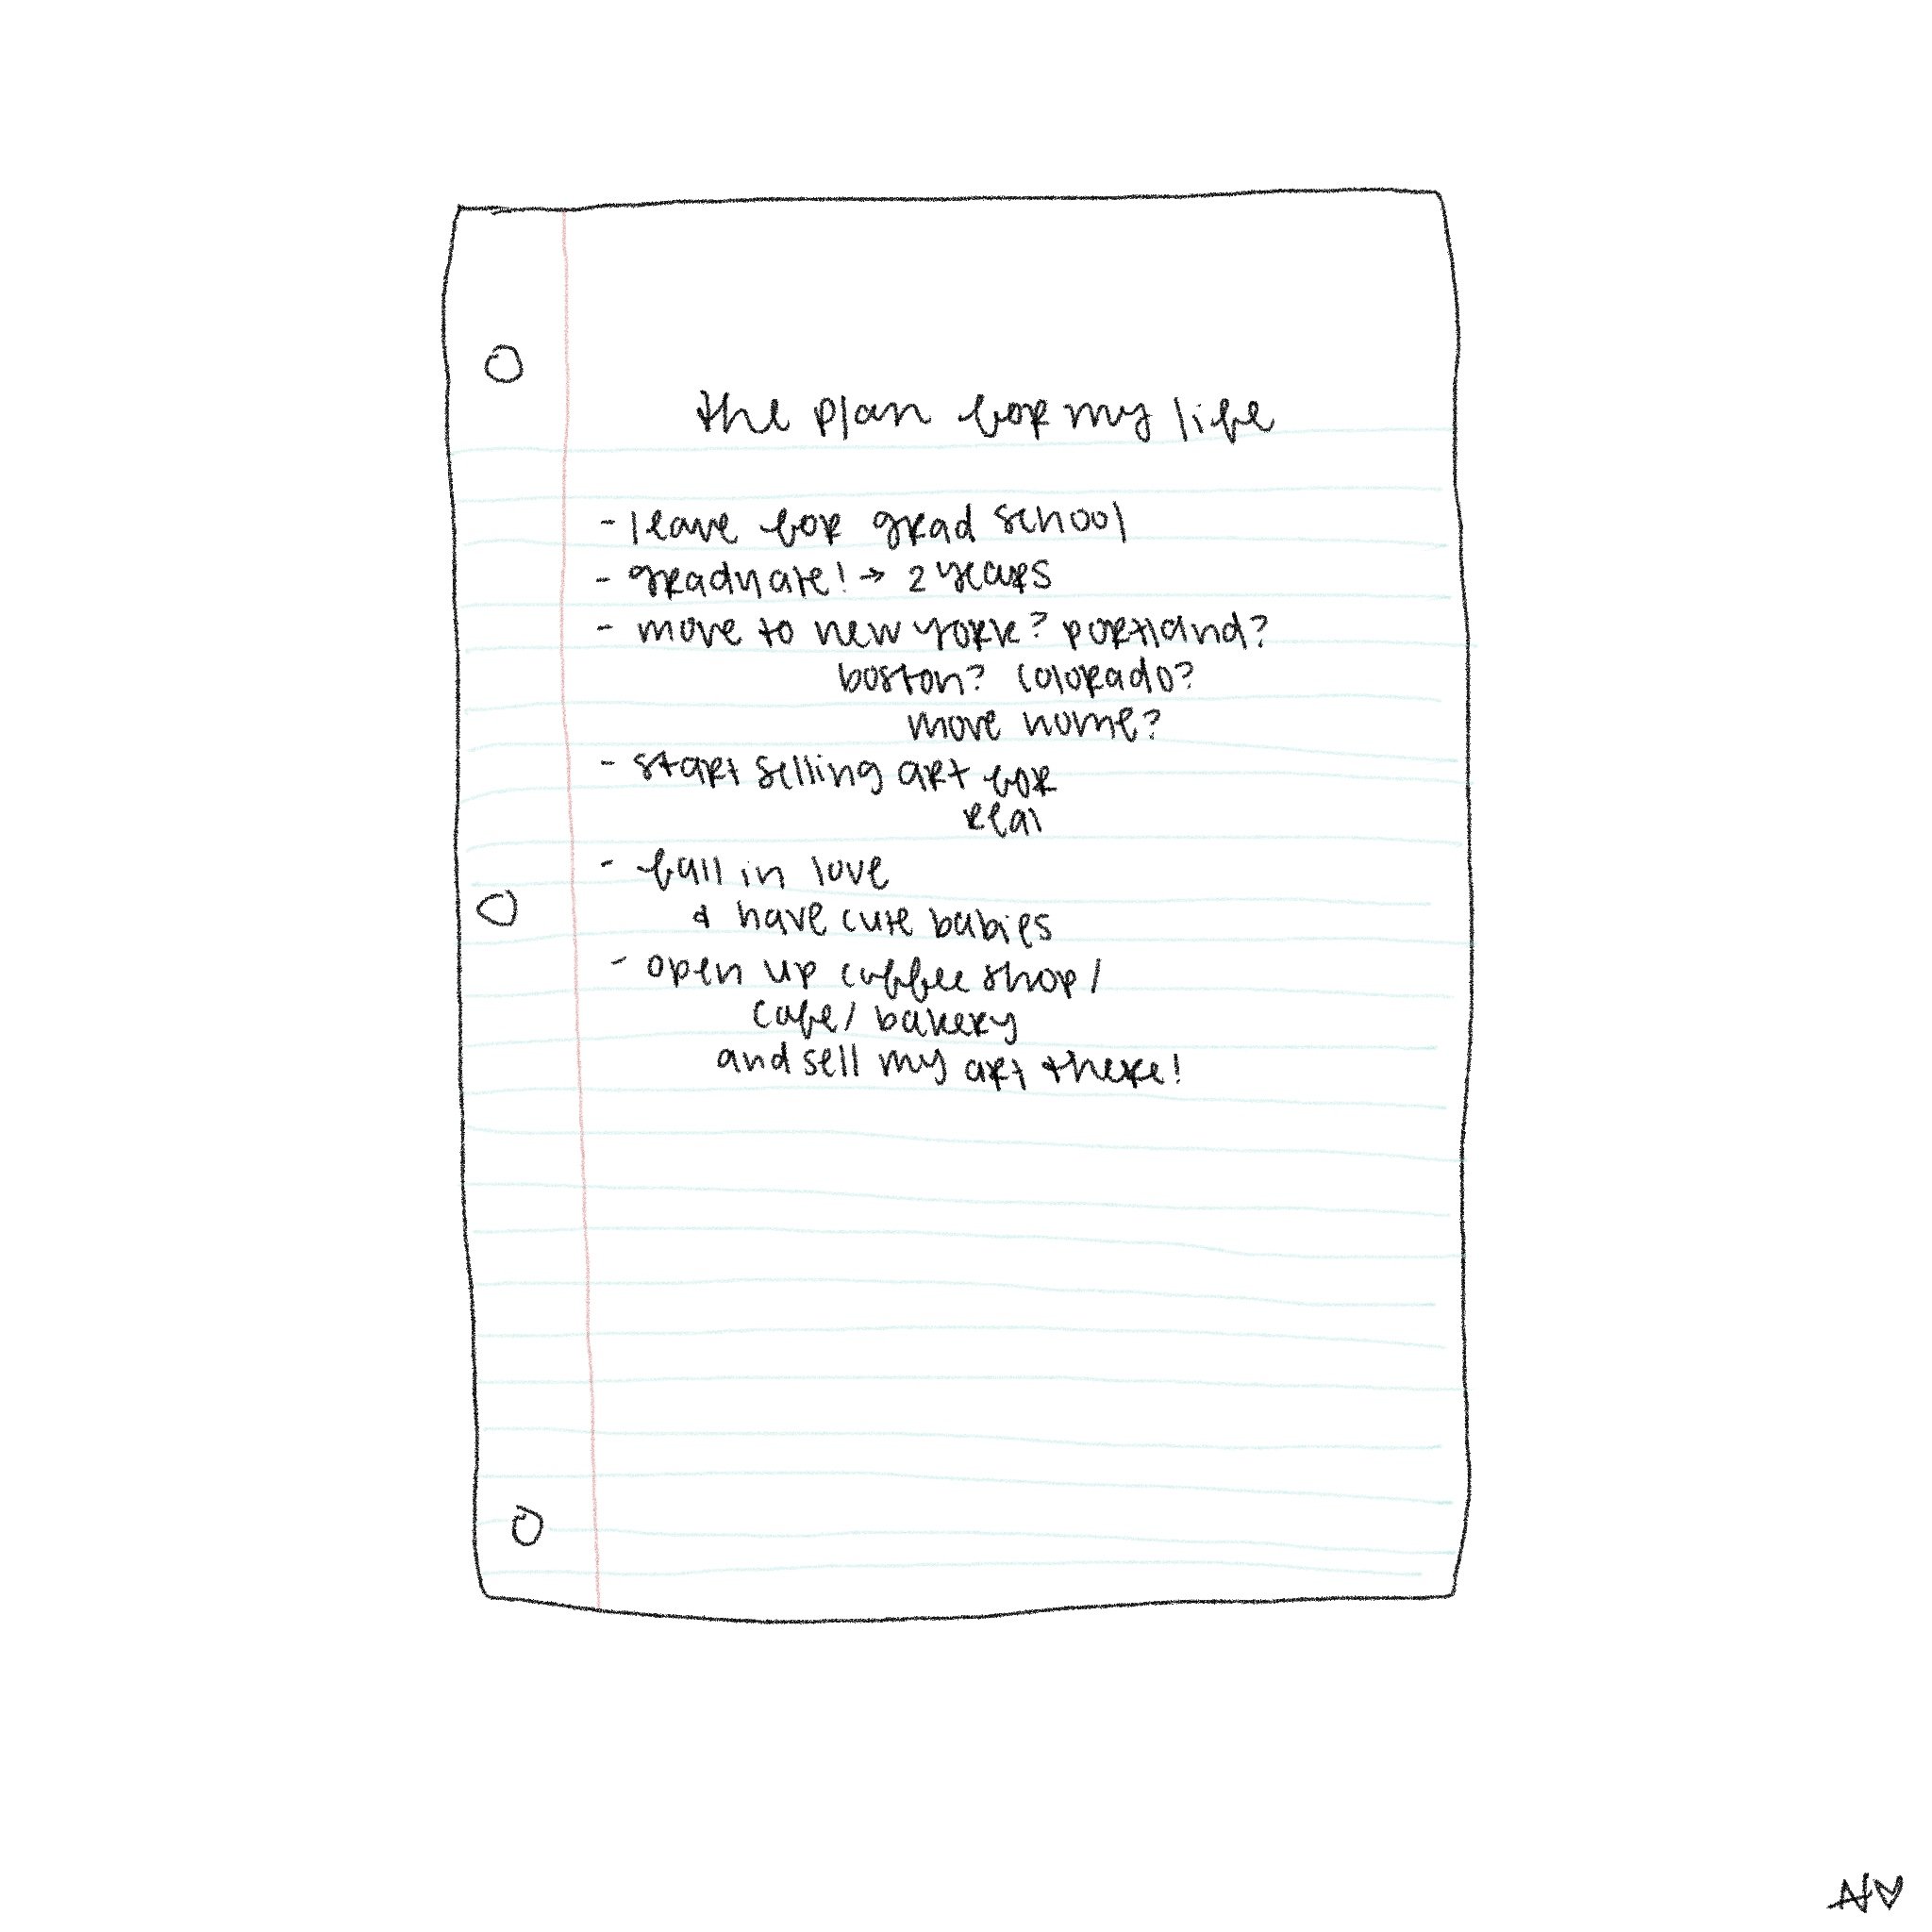 the plan for my life
- leave for grad school
- graduate! → 2 years
- move to new york? portland?
boston? colorado?
move home?
- start selling art for
real
- fall in love
& have cute babies
- open up coffee shop/
cafe/ bakery
and sell my art there!